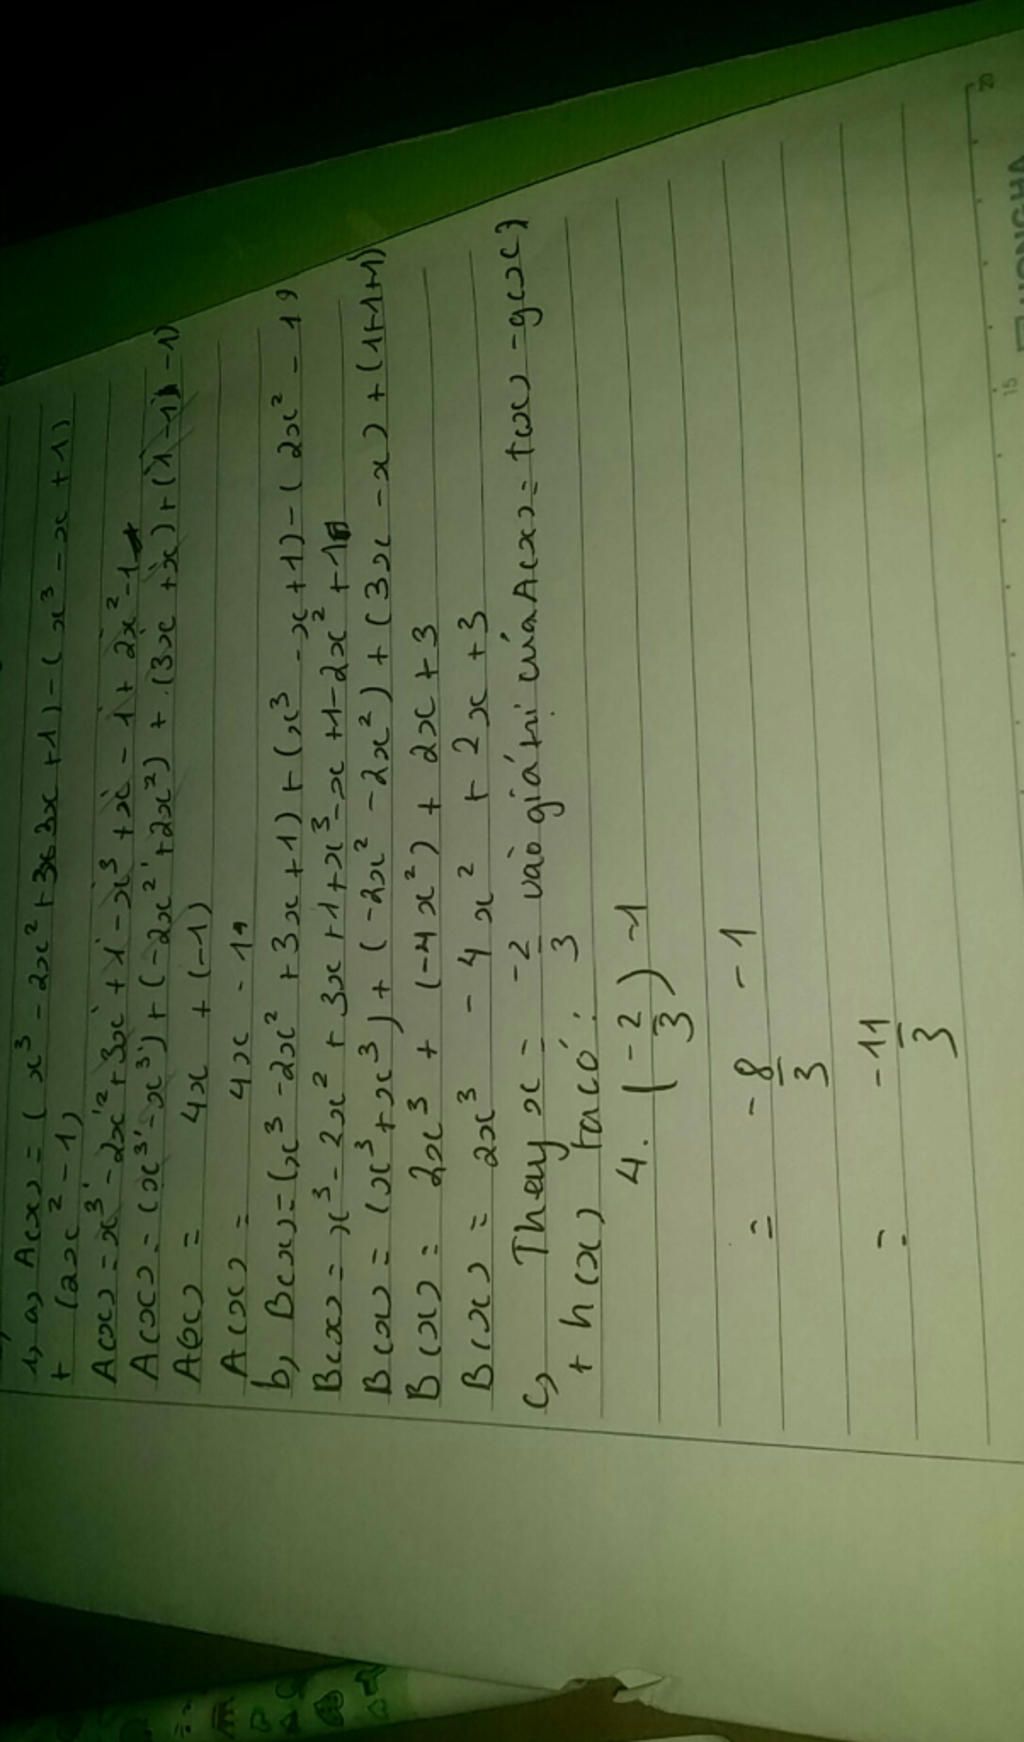 1, a, A(x) = (x³ - 2x² + 3x 3x + 1) - (x³ - x + 1)
+ (2x² - 1)
A(x) = x³ - 2x² + 3x + 1 - x³ + x - 1 + 2x² - 1
A(x) = (x³ - x³) + (-2x² + 2x²) + (3x + x) + (1 - 1 - 1)
A(x) = 4x + (-1)
A(x) = 4x - 1
b, B(x) = (x³ - 2x² + 3x + 1) + (x³ - x + 1) - (2x² - 1)
B(x) = x³ - 2x² + 3x + 1 + x³ - x + 1 - 2x² + 1
B(x) = (x³ + x³) + (-2x² - 2x²) + (3x - x) + (1+1+1)
B(x) = 2x³ + (-4x²) + 2x + 3
B(x) = 2x³ - 4x² + 2x + 3
c, Thay x = -2/3 vào giá trị của A(x) = f(x) - g(x)
+ h(x) ta có:
4. (-2/3) - 1
= -8/3 - 1
= -11/3
15
20
HONG HA